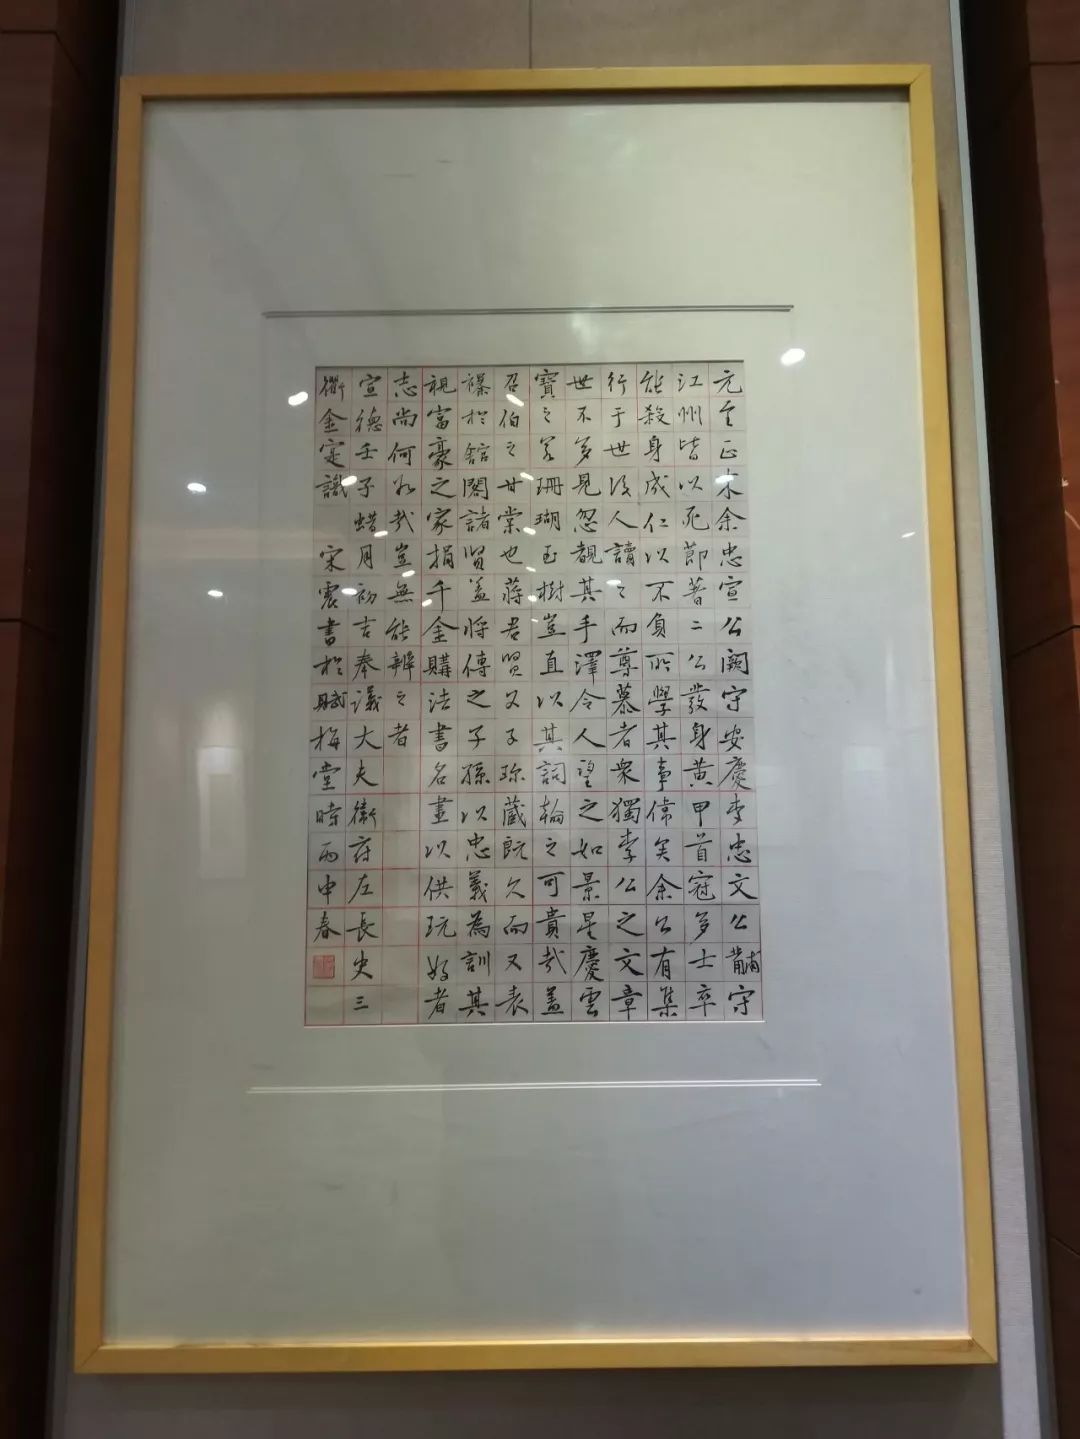 元至正末余忠宣公阙守安慶李忠文公黼守
江州皆以死節著二公發身黃甲首冠多士卒
能殺身成仁以不負所學其事偉矣余公有集
行于世後人讀之而尊慕者衆獨李公之文章
世不多見忽覩其手澤令人望之如景星慶雲
寶之若珊瑚玉樹豈直以其詞翰之可貴哉蓋
召伯之甘棠也蔣君賢又子珍藏既久而又表
襮於館閣諸賢蓋將傳之子孫以忠義為訓其
視富豪之家捐千金購法書名畫以供玩好者
志尚何如哉豈無能辨之者
宣德壬子蜡月初吉奉議大夫衛府左長史三
衢金寔識 宋震書於賦梅堂時丙申春